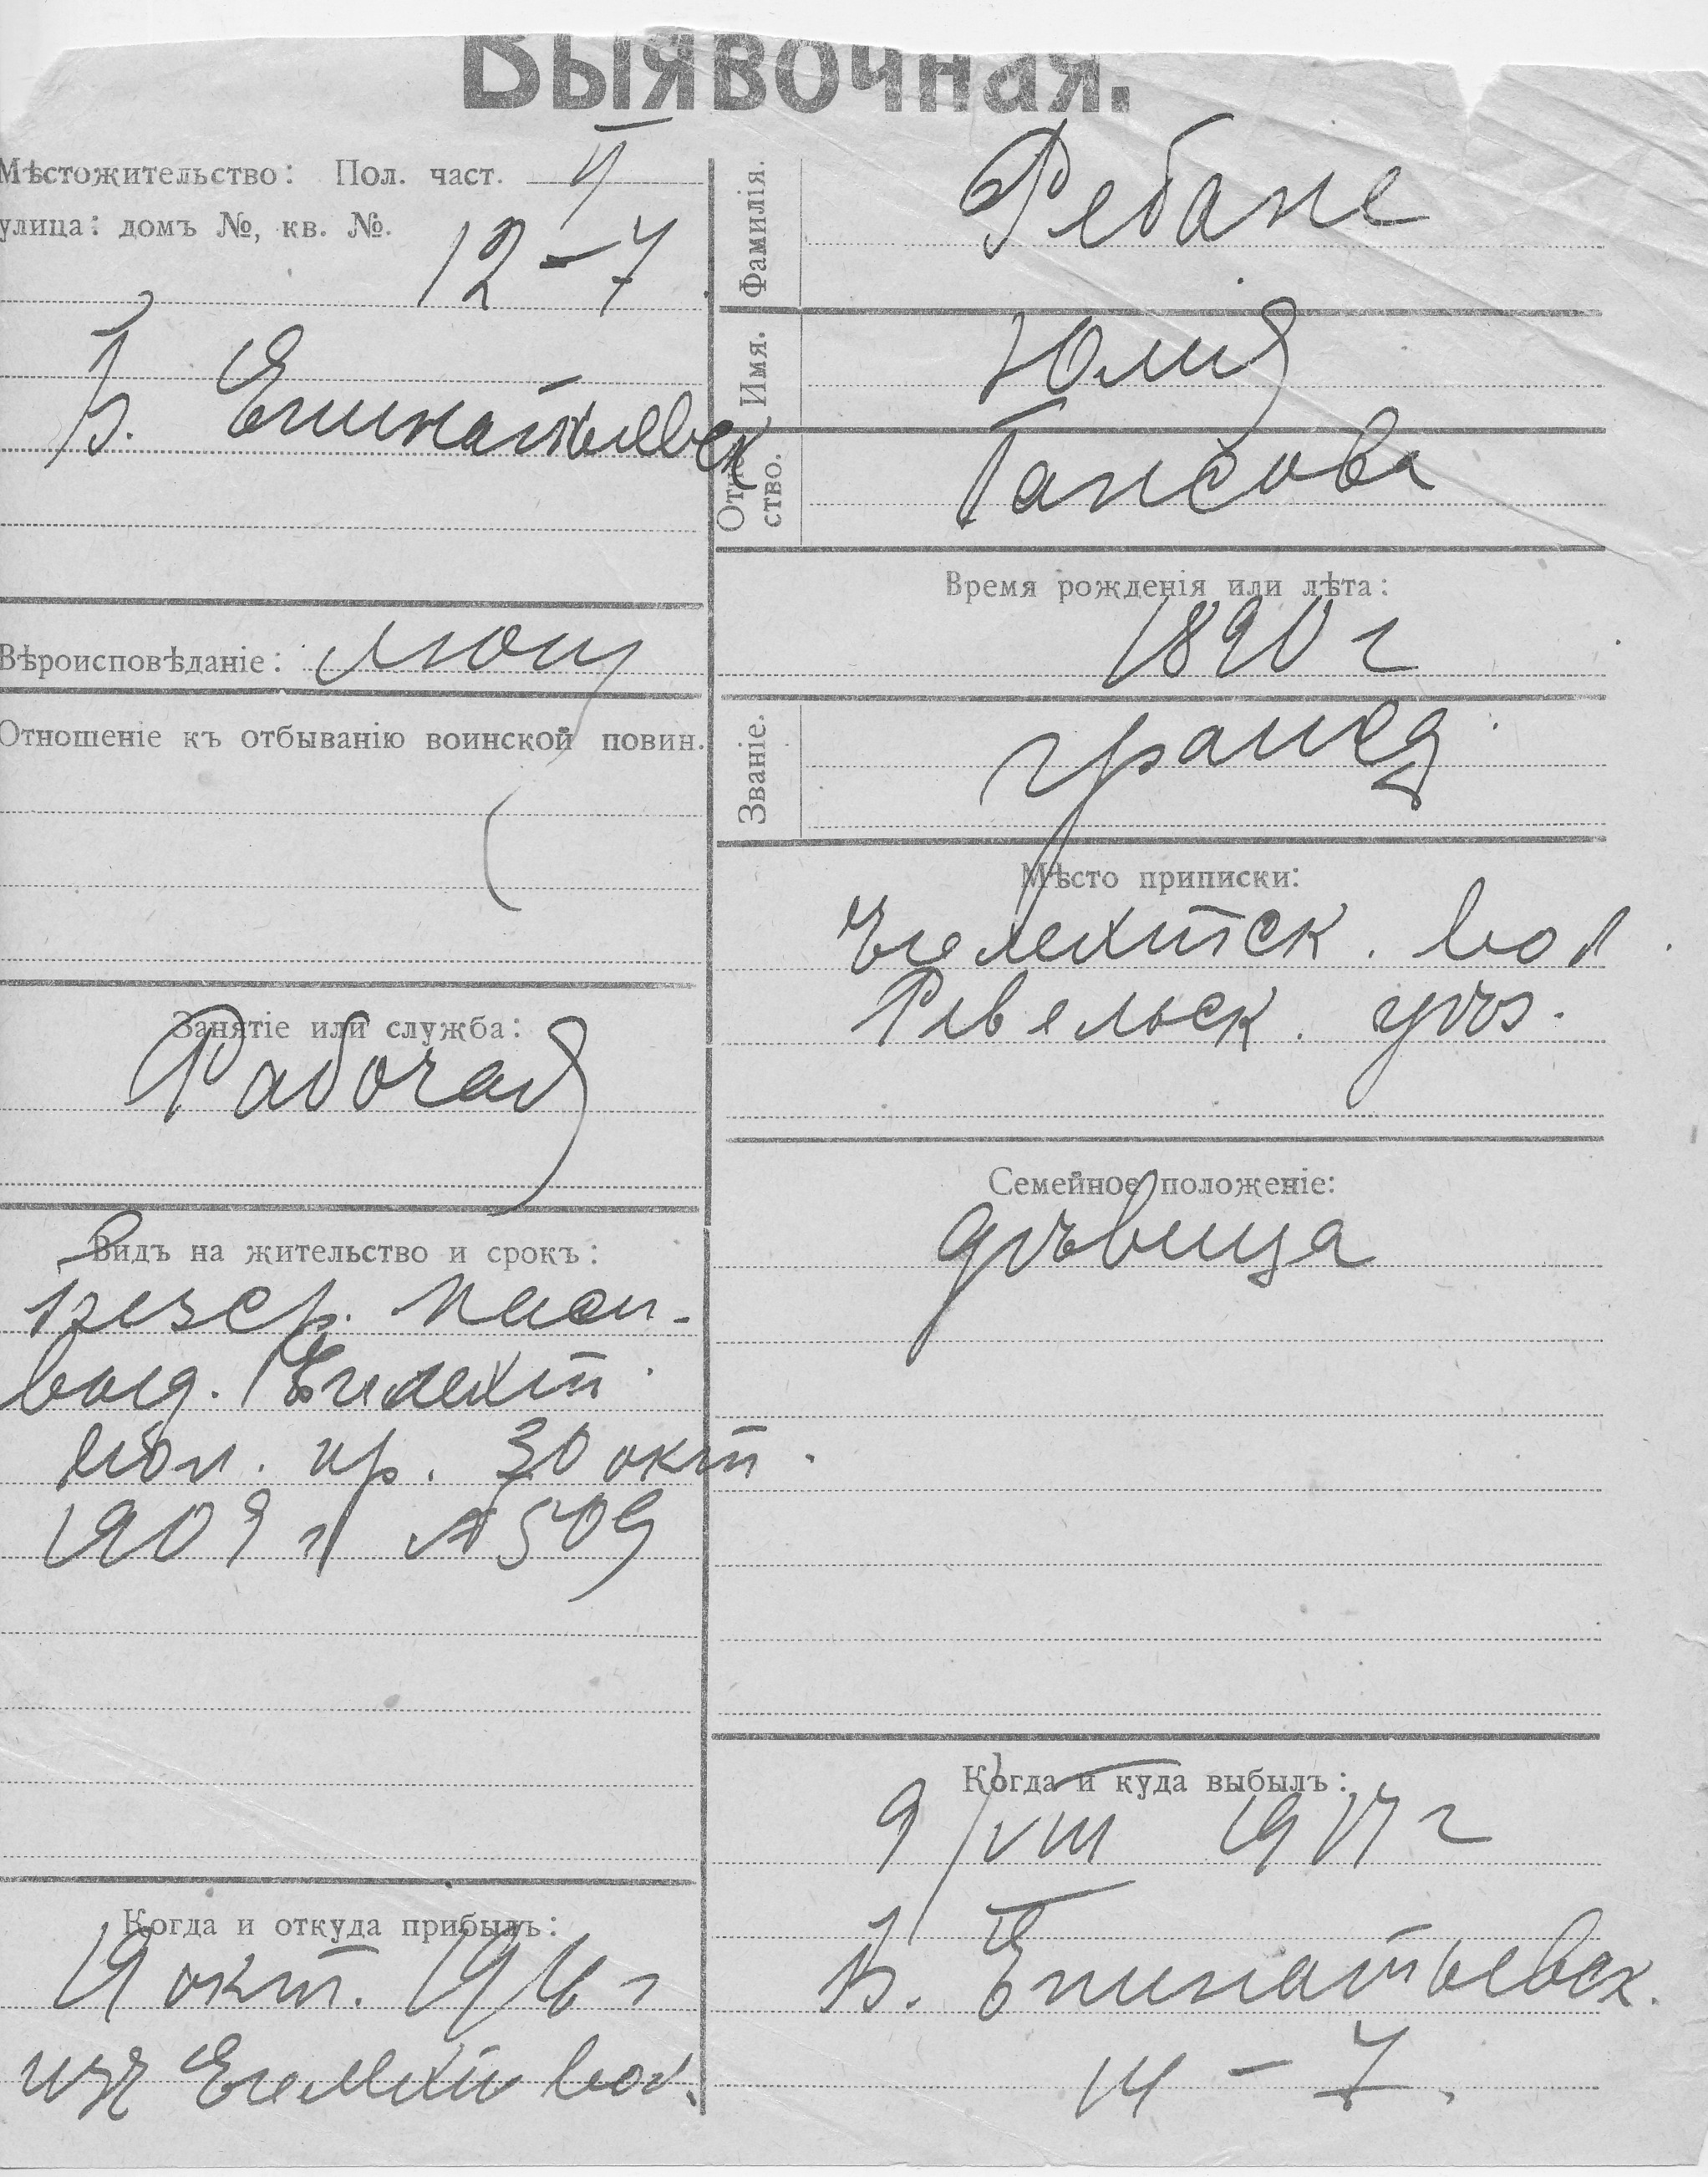 Выявочная.
Мѣстожительство: Пол. част. II
улица: домъ №, кв. №.
12–7
Б. Епинатьевск
Вѣроисповѣданіе: лют
Отношеніе къ отбыванію воинской повин.
Занятіе или служба:
Рабочая
Видъ на жительство и срокъ:
безср. пасп.
выд.
вол. пр. 30 окт.
1909 г № 509
Когда и откуда прибылъ:
19 окт. 1916 г
изъ вол.
Фамилія. Ребане
Имя. Юлія
Отче-ство. Гансова
Время рожденія или лѣта:
1890 г
Званіе. гражд.
Мѣсто приписки:
вол.
Ревельск. уѣз.
Семейное положеніе:
дѣвица
Когда и куда выбылъ:
9/VIII 1917 г
Б. Епинатьевск.
14 – 7.